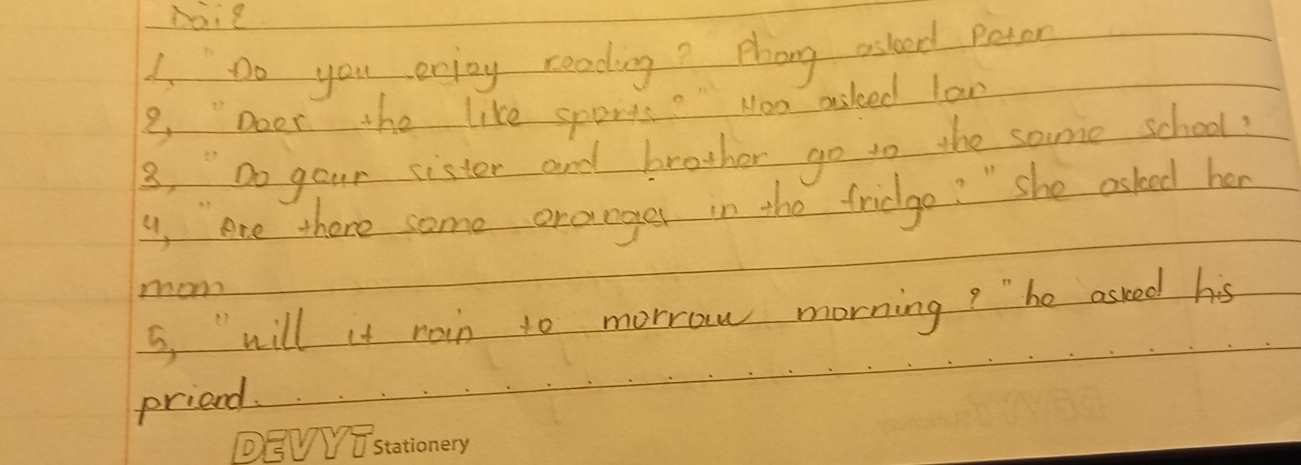 Bài 2
1, "Do you enjoy reading? Phong asked Peter
2, "Does she like sports?" Hoa asked lan
3, "Do your sister and brother go to the same school?
4, "Are there some oranges in the fridge?" she asked her
mom
5, "will it rain to morrow morning? "he asked his
priend. . . . . . . . . . . . . . . . . . .
DEVYT Stationery